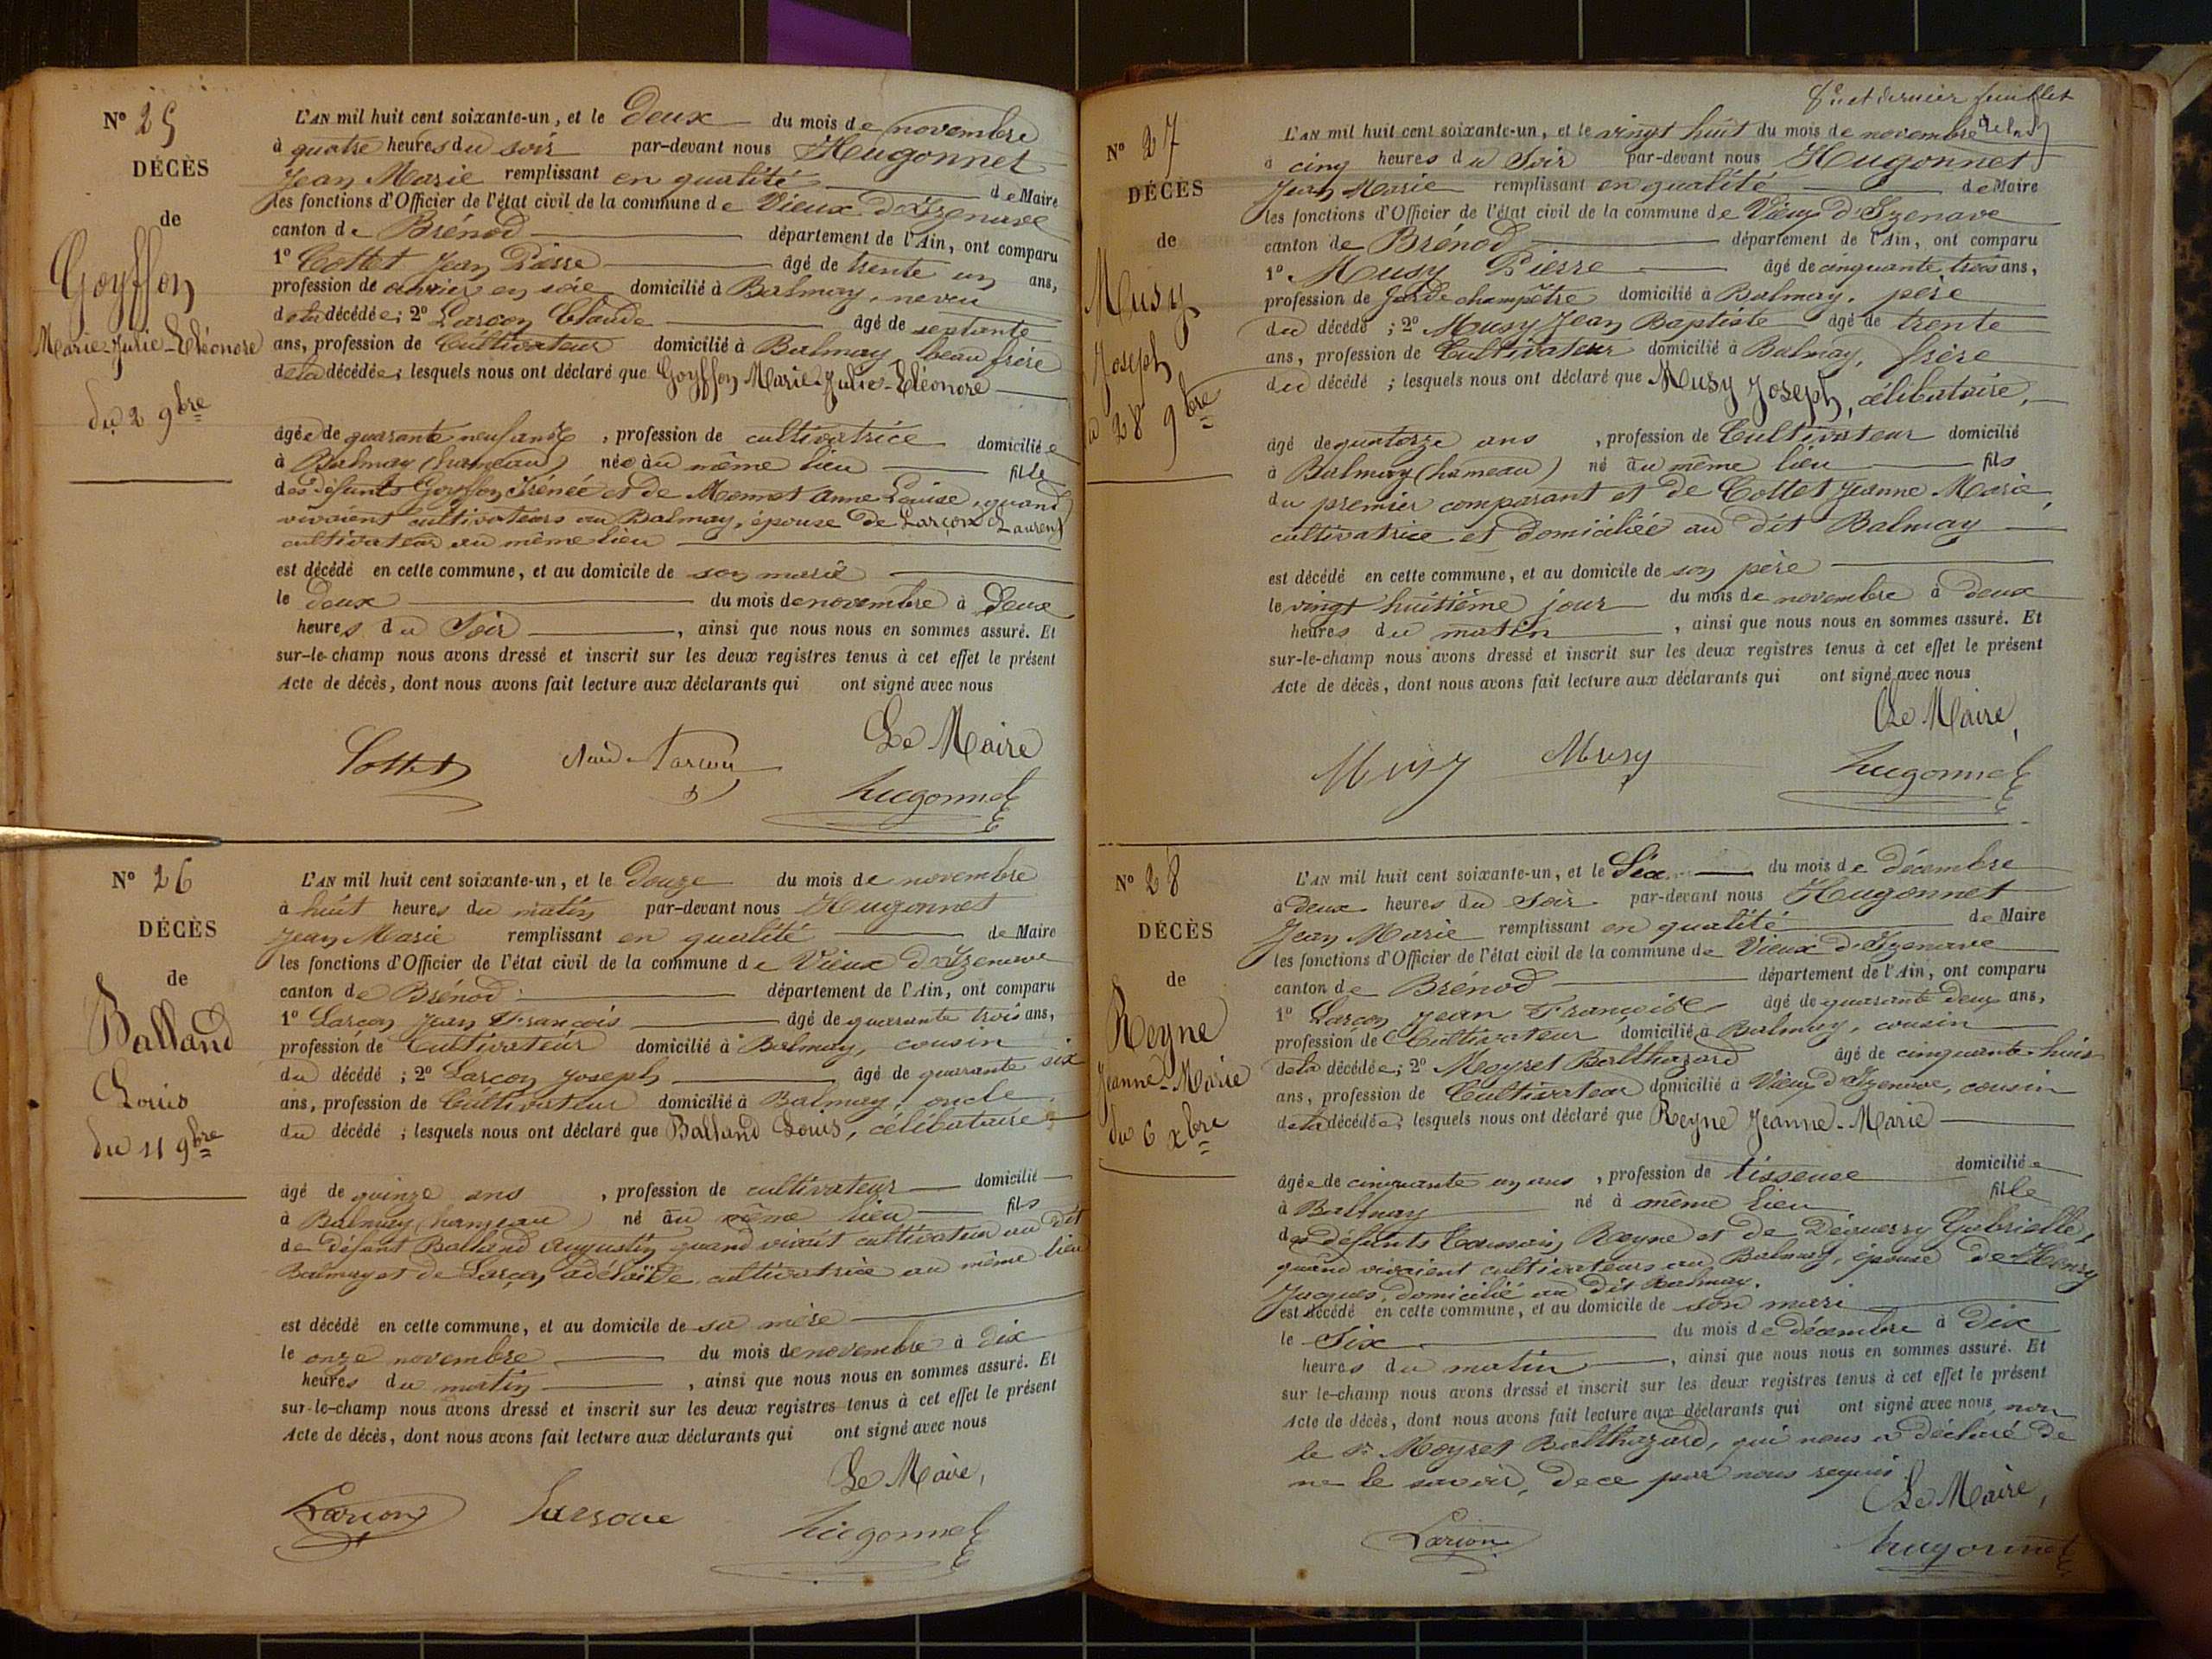 N° 25
DÉCÈS
de
Goyffon
Marie-Julie-Eléonore
du 2 9bre
L'AN mil huit cent soixante-un, et le Deux du mois de novembre
à quatre heures du soir par-devant nous Hugonnet
Jean Marie remplissant en qualité de Maire
les fonctions d'Officier de l'état civil de la commune de Vieux d'Izenave
canton de Brénod département de l'Ain, ont comparu
1° Cottet Jean Pierre âgé de trente un ans,
profession de ouvrier en soie domicilié à Balmay, neveu
de la décédée; 2° Larçon Claude âgé de septante
ans, profession de Cultivateur domicilié à Balmay, beau frère
de la décédée; lesquels nous ont déclaré que Goyffon Marie-Julie-Eléonore
âgée de quarante neuf ans, profession de cultivatrice domiciliée
à Balmay (hameau) née au même lieu fille
des défunts Goyffon Irénée et de Monnet Anne Louise, quand
vivaient cultivateurs au Balmay, épouse de Larçon Laurent
cultivateur au même lieu
est décédé en cette commune, et au domicile de son marié
le deux du mois de novembre à Deux
heures du Soir, ainsi que nous nous en sommes assuré. Et
sur-le-champ nous avons dressé et inscrit sur les deux registres tenus à cet effet le présent
Acte de décès, dont nous avons fait lecture aux déclarants qui ont signé avec nous
Le Maire
Cottet Larçon hugonnet
N° 26
DÉCÈS
de
Balland
Louis
du 11 9bre
L'AN mil huit cent soixante-un, et le Douze du mois de novembre
à huit heures du matin par-devant nous Hugonnet
Jean Marie remplissant en qualité de Maire
les fonctions d'Officier de l'état civil de la commune de Vieux d'Izenave
canton de Brénod département de l'Ain, ont comparu
1° Larçon Jean François âgé de quarante trois ans,
profession de Cultivateur domicilié à Balmay, cousin
du décédé ; 2° Larçon Joseph âgé de quarante six
ans, profession de Cultivateur domicilié à Balmay, oncle
du décédé ; lesquels nous ont déclaré que Balland Louis, célibataire
âgé de quinze ans, profession de cultivateur domicilié
à Balmay (hameau) né au même lieu fils
de défunt Balland Augustin quand vivait cultivateur au dit
Balmay et de Larçon adélaïde, cultivatrice au même lieu
est décédé en cette commune, et au domicile de sa mère
le onze novembre du mois de novembre à dix
heures du matin, ainsi que nous nous en sommes assuré. Et
sur-le-champ nous avons dressé et inscrit sur les deux registres tenus à cet effet le présent
Acte de décès, dont nous avons fait lecture aux déclarants qui ont signé avec nous
Le Maire,
Larçon hugonnet
8e et dernier feuillet
N° 27
DÉCÈS
de
Musy
Joseph
28 9bre
L'AN mil huit cent soixante-un, et le vingt huit du mois de novembre
à cinq heures du Soir par-devant nous Hugonnet
Jean Marie remplissant en qualité de Maire
les fonctions d'Officier de l'état civil de la commune de Vieux d'Izenave
canton de Brénod département de l'Ain, ont comparu
1° Musy Pierre âgé de cinquante trois ans,
profession de Garde champêtre domicilié à Balmay, père
du décédé ; 2° Musy Jean Baptiste âgé de trente
ans, profession de Cultivateur domicilié à Balmay, frère
du décédé ; lesquels nous ont déclaré que Musy Joseph, célibataire,
âgé de quatorze ans, profession de Cultivateur domicilié
à Balmay (hameau) né au même lieu fils
du premier comparant et de Cottet Jeanne Marie,
cultivatrice et domiciliée au dit Balmay
est décédé en cette commune, et au domicile de son père
le vingt huitième jour du mois de novembre à deux
heures du matin, ainsi que nous nous en sommes assuré. Et
sur-le-champ nous avons dressé et inscrit sur les deux registres tenus à cet effet le présent
Acte de décès, dont nous avons fait lecture aux déclarants qui ont signé avec nous
Le Maire,
Musy Musy hugonnet
N° 28
DÉCÈS
de
Reyne
Jeanne-Marie
du 6 xbre
L'AN mil huit cent soixante-un, et le Six du mois de Décembre
à Deux heures du Soir par-devant nous Hugonnet
Jean Marie remplissant en qualité de Maire
les fonctions d'Officier de l'état civil de la commune de Vieux d'Izenave
canton de Brénod département de l'Ain, ont comparu
1° Larçon Jean François âgé de quarante deux ans,
profession de Cultivateur domicilié à Balmay, cousin
de la décédée; 2° Moyret Balthazard âgé de cinquante huit
ans, profession de Cultivateur domicilié à Vieux d'Izenave, cousin
de la décédée; lesquels nous ont déclaré que Reyne Jeanne-Marie
âgée de cinquante un ans, profession de tisseuse domiciliée
à Balmay né à même lieu fille
des défunts Reyne et de Déguerry Gabrielle,
quand vivaient cultivateurs au Balmay, épouse de Henry
Jacques, domicilié au dit Balmay.
est décédé en cette commune, et au domicile de son mari
le Six du mois de décembre à Dix
heures du matin, ainsi que nous nous en sommes assuré. Et
sur-le-champ nous avons dressé et inscrit sur les deux registres tenus à cet effet le présent
Acte de décès, dont nous avons fait lecture aux déclarants qui ont signé avec nous, non
le Sr Moyret Balthazard, qui nous a déclaré de
ne le savoir, de ce par nous requis
Le Maire,
Larçon hugonnet